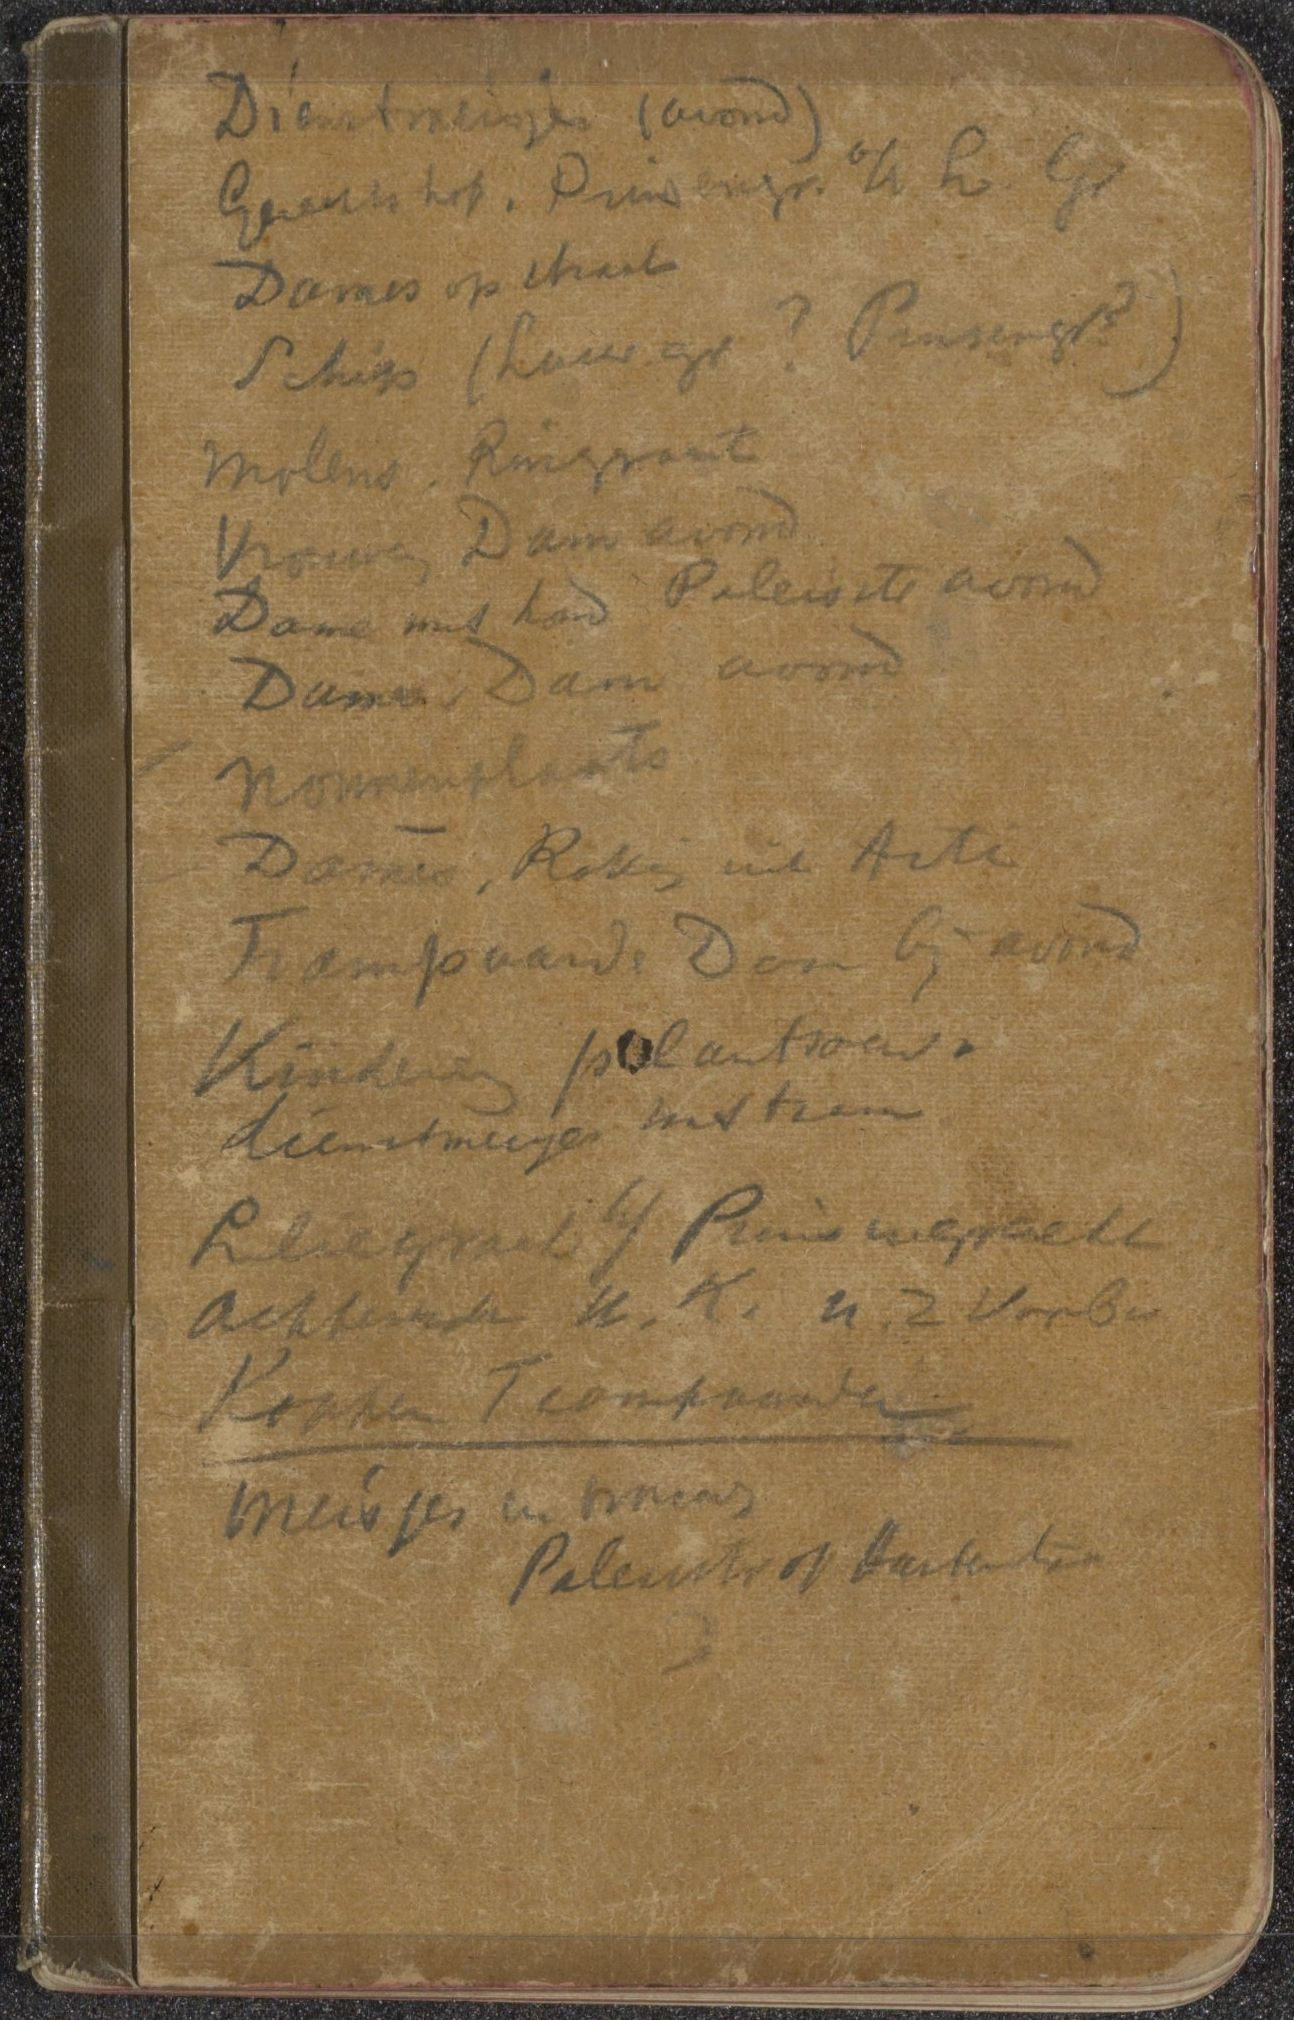 Dienstmeisjes (avond)
Prinsengr. of L. Gr
Dames op straat
Schips (Lauriergr ? Prinsengr?)
Molens. Ringvaart
Vrouwen Dam avond
Dame met hond Paleisstr avond
Dames Dam avond
Nonnenplaats
Dames, Rokin uit Arti
Trampaard. Dam bij avond
Kinderen plantsoen.
dienstmeisjes met tram
Leliegracht bij Prinsengracht
n. 2
Koppen Trampaarden
Meisjes en vrouw
Paleisstr of Hartenstr